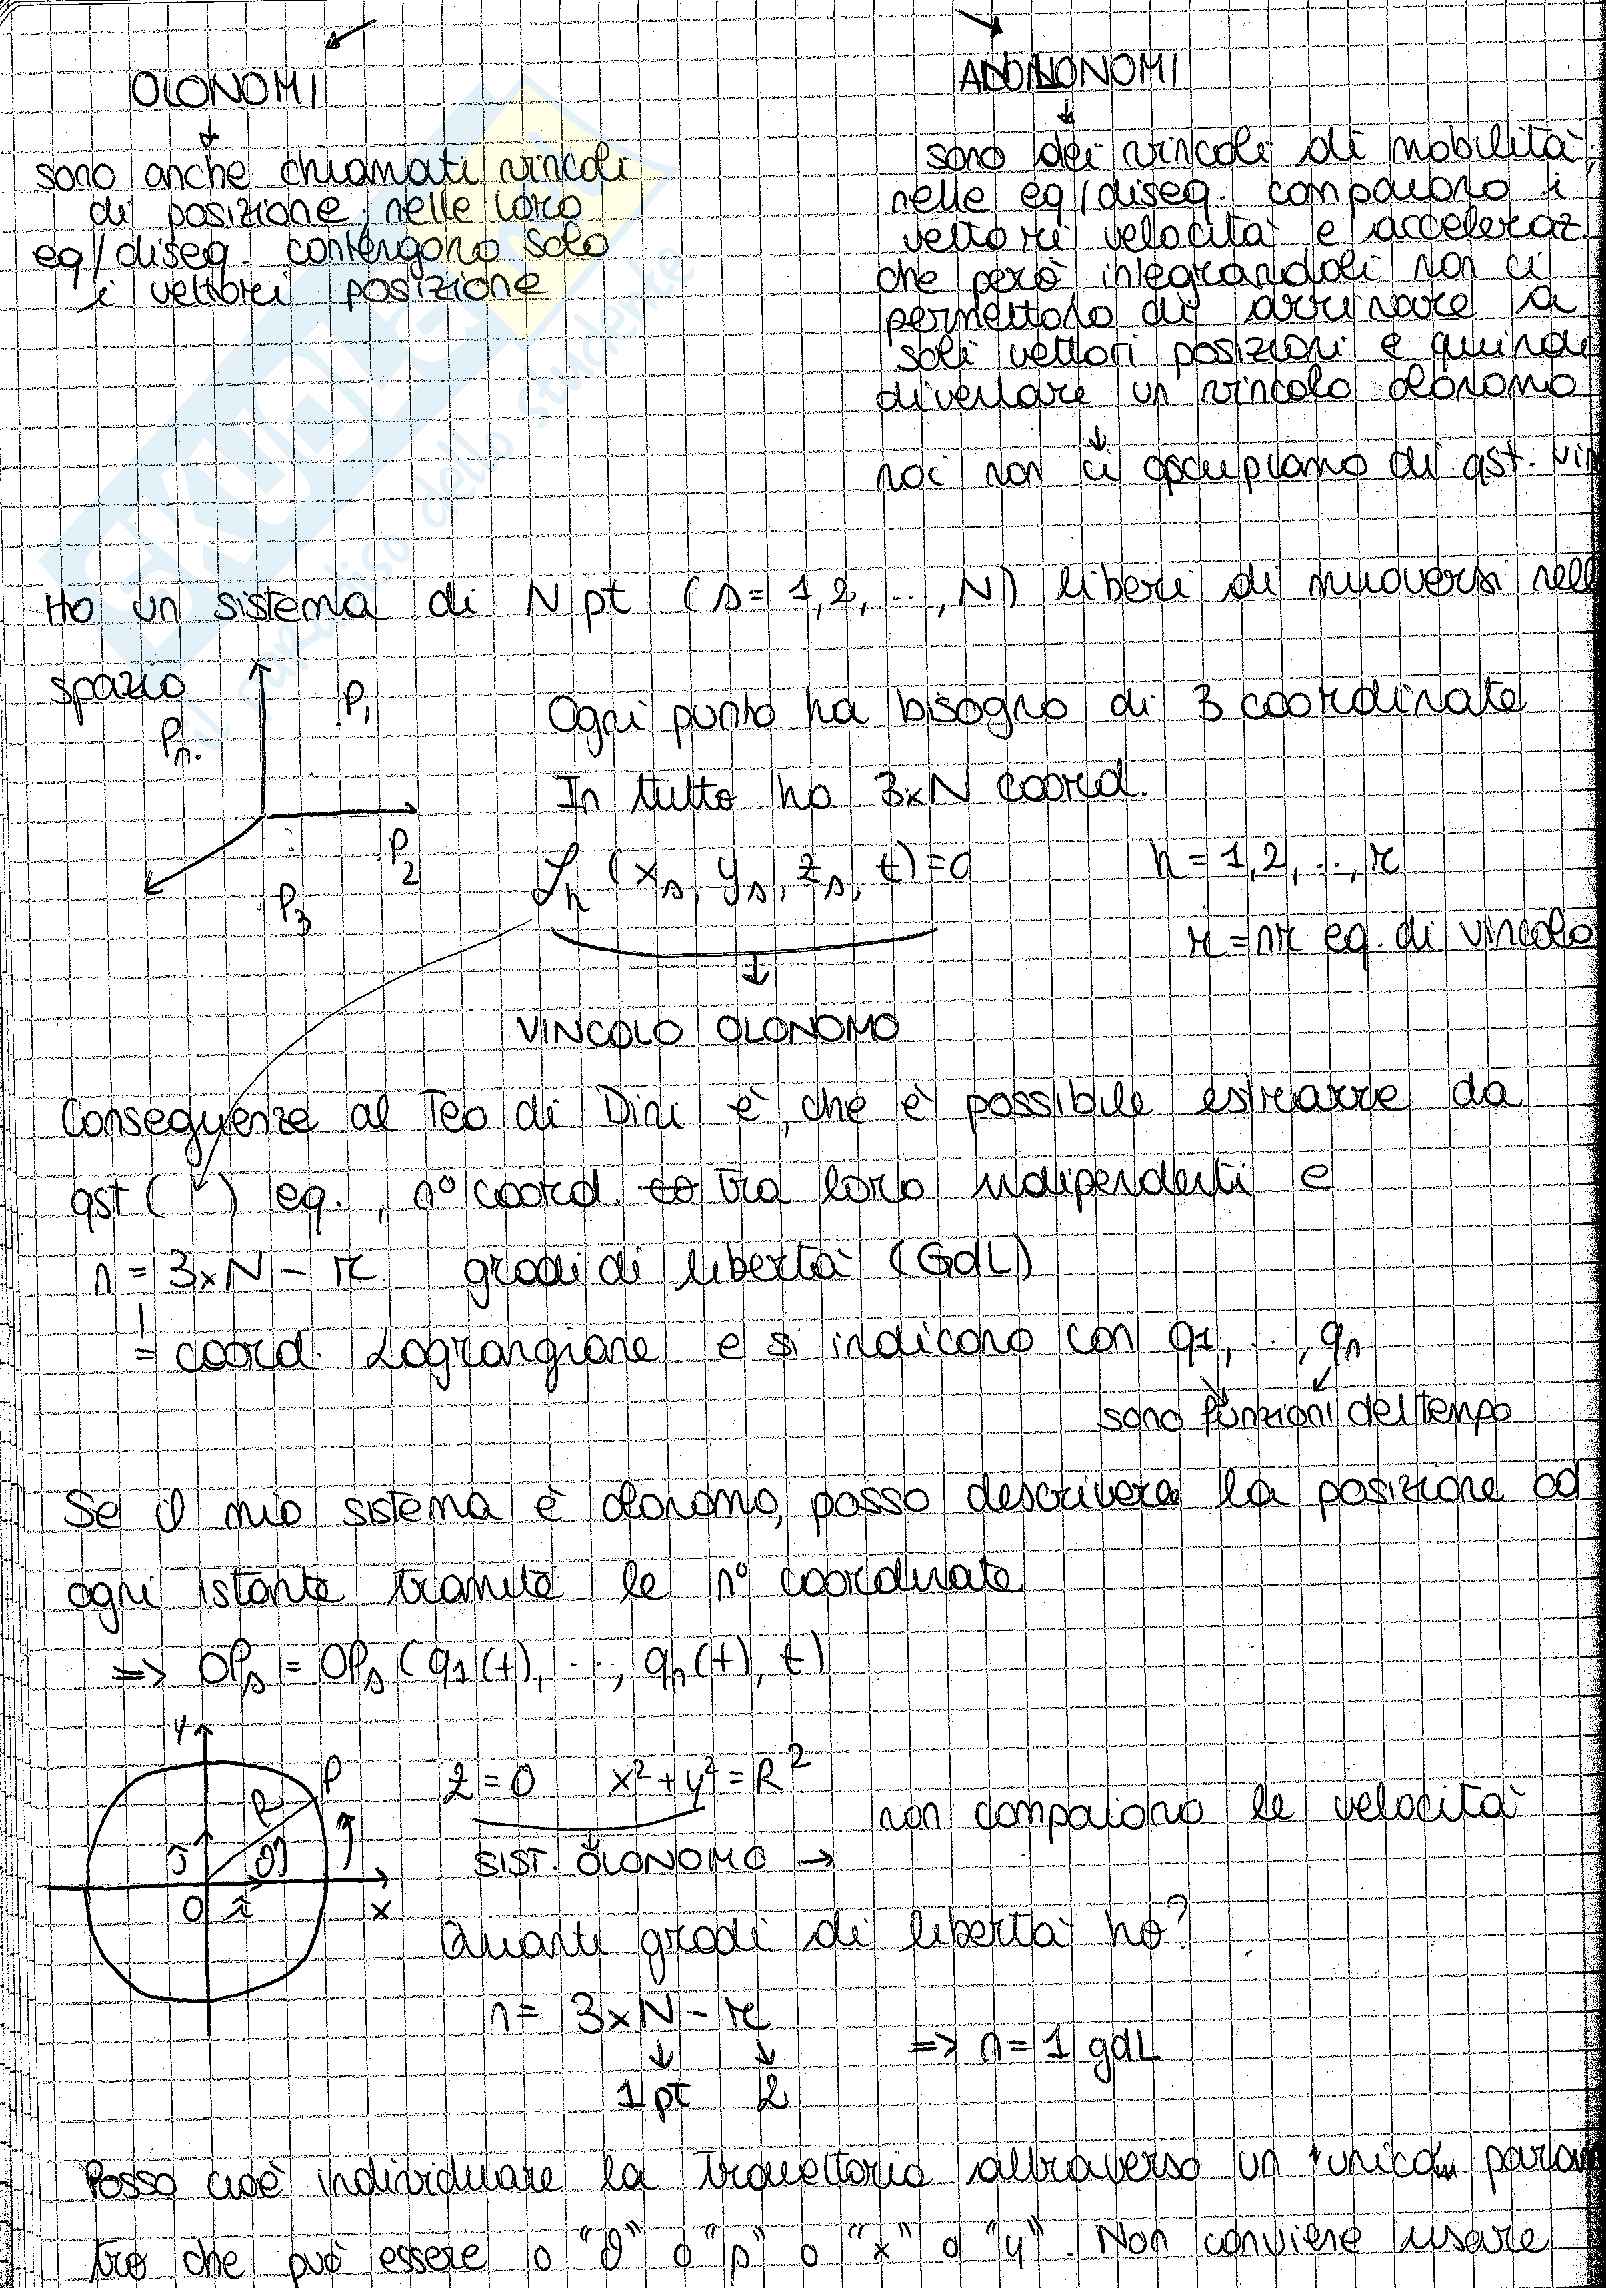 OLONOMI
sono anche chiamati vincoli
di posizione, nelle loro
eq/diseq. contengono solo
i vettori posizione
ANOLONOMI
sono dei vincoli di mobilità,
nelle eq/diseq. compaiono i
vettori velocità e acceleraz
che però integrandoli non ci
permettono di arrivare a
soli vettori posizioni e quindi
diventare un vincolo olonomo
noi non ci occupiamo di qst. vin
Ho un sistema di N pt (s=1,2,...,N) liberi di muoversi nell
spazio
P1
Pn.
P2
P3
Ogni punto ha bisogno di 3 coordinate
In tutto ho 3xN coord.
fh (xs, ys, zs, t)=0 h=1,2,...,r
r=nr eq. di vincolo
VINCOLO OLONOMO
Conseguenze al Teo di Dini è, che è possibile estrarre da
qst ( ) eq., n° coord. tra loro indipendenti e
n = 3xN - r gradi di libertà (GdL)
= coord. Lagrangiane e si indicono con q1,...,qn
sono funzioni del tempo
Se il mio sistema è olonomo, posso descrivere la posizione ad
ogni istante tramite le n° coordinate
=> OPs = OPs (q1(t),..., qn(t), t)
y
P
R
j
θ
O i x
z=0 x²+y²=R²
SIST. OLONOMO → non compaiono le velocità
Quanti gradi di libertà ho?
n= 3xN - r => n=1 gdL
1 pt 2
Posso cioè individuare la traiettoria attraverso un unico param
tro che può essere o "θ" o "p" o "x" o "y". Non conviene usare